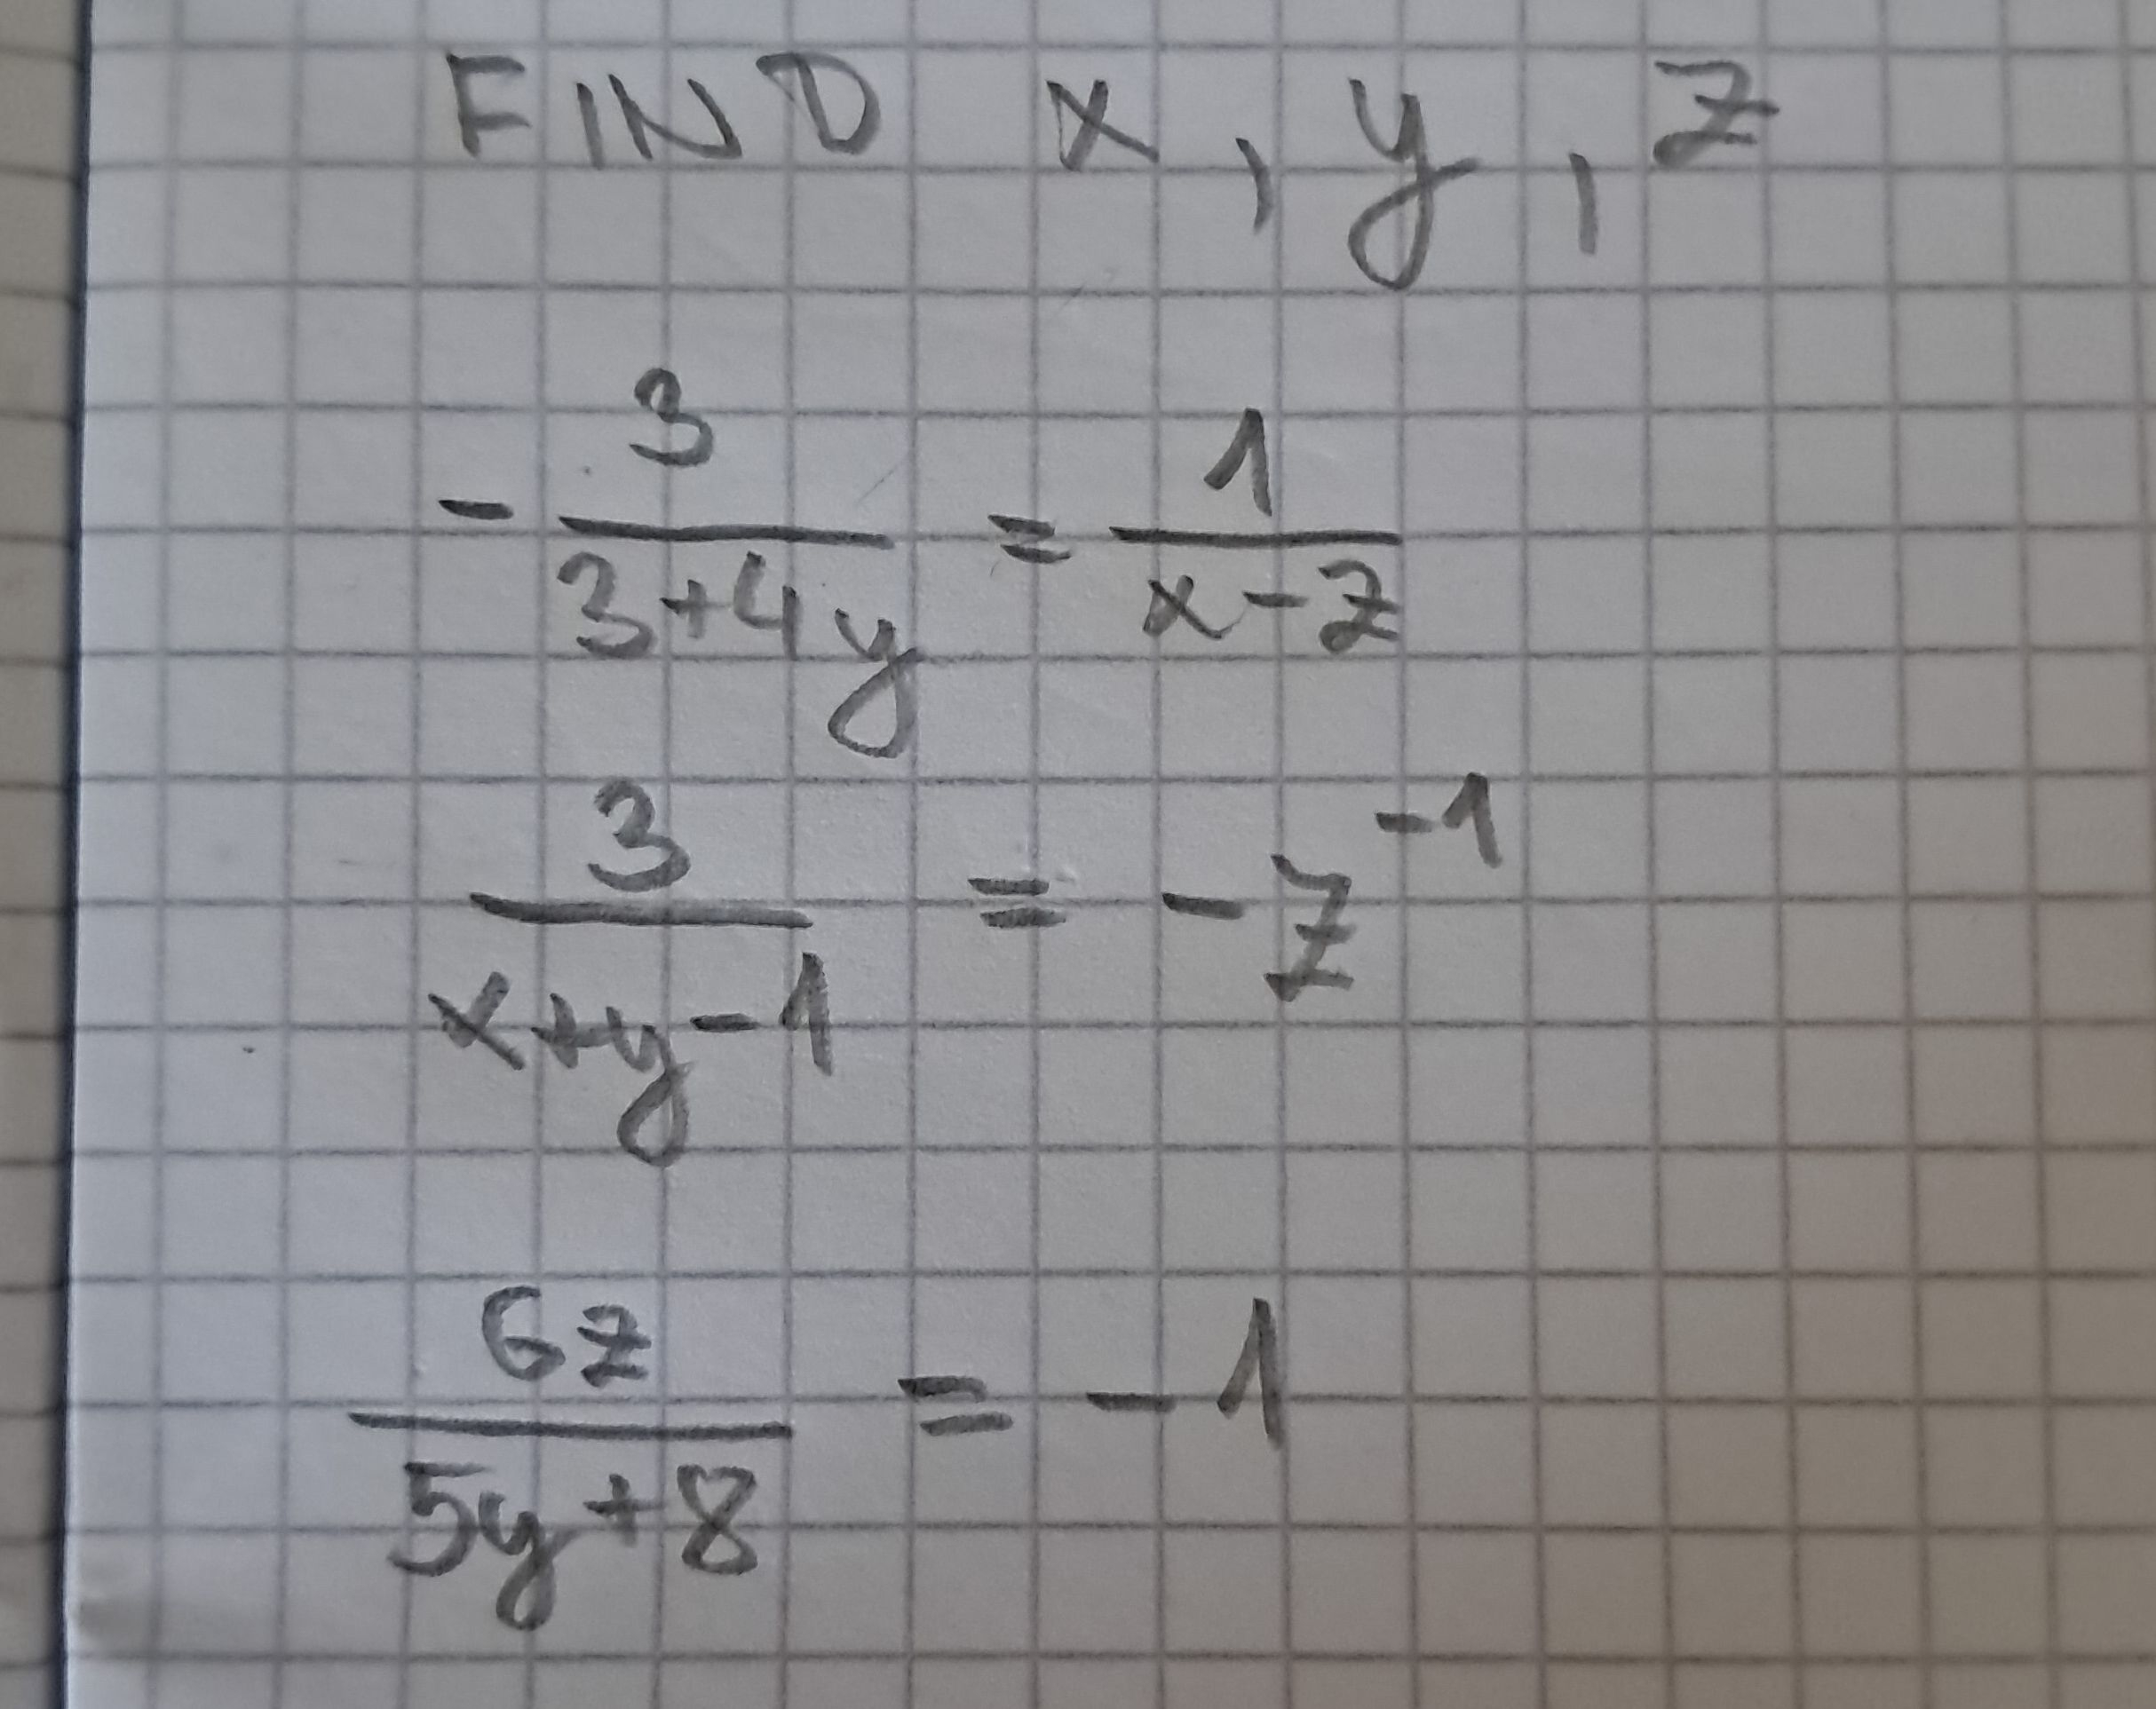 FIND x, y, z
- 3/(3+4y) = 1/(x-z)
3/(x+y-1) = -z^-1
6z/(5y+8) = -1